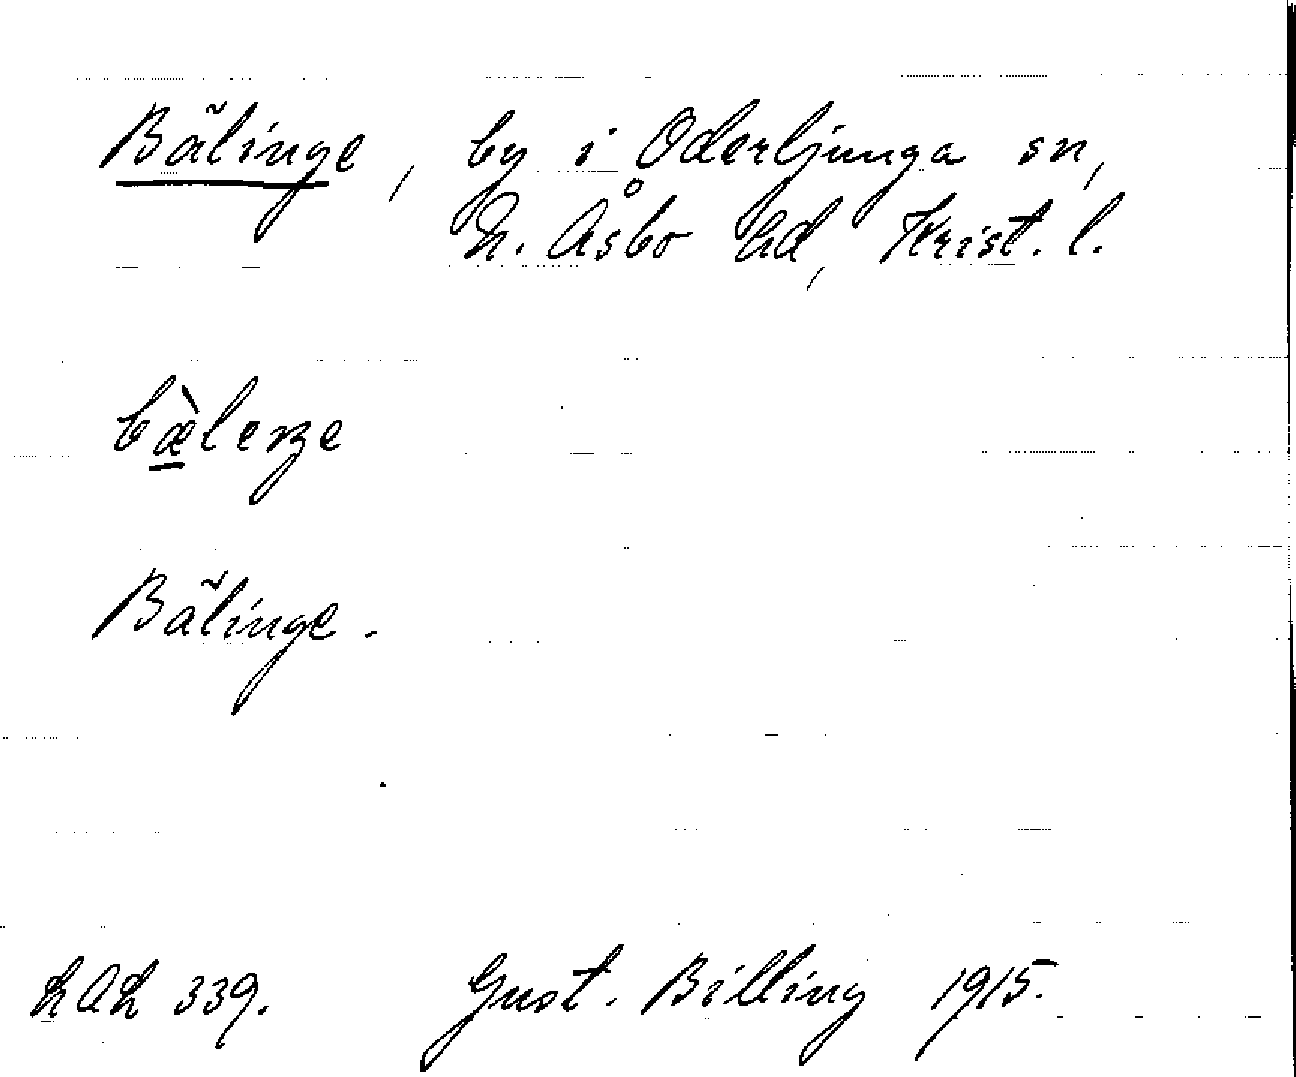 Bälinge, by i Oderljunga sn,
N. Åsbo hd, Krist. l.
bæ̀leŋe
Bälinge.
LAL 339. Gust. Billing 1915.